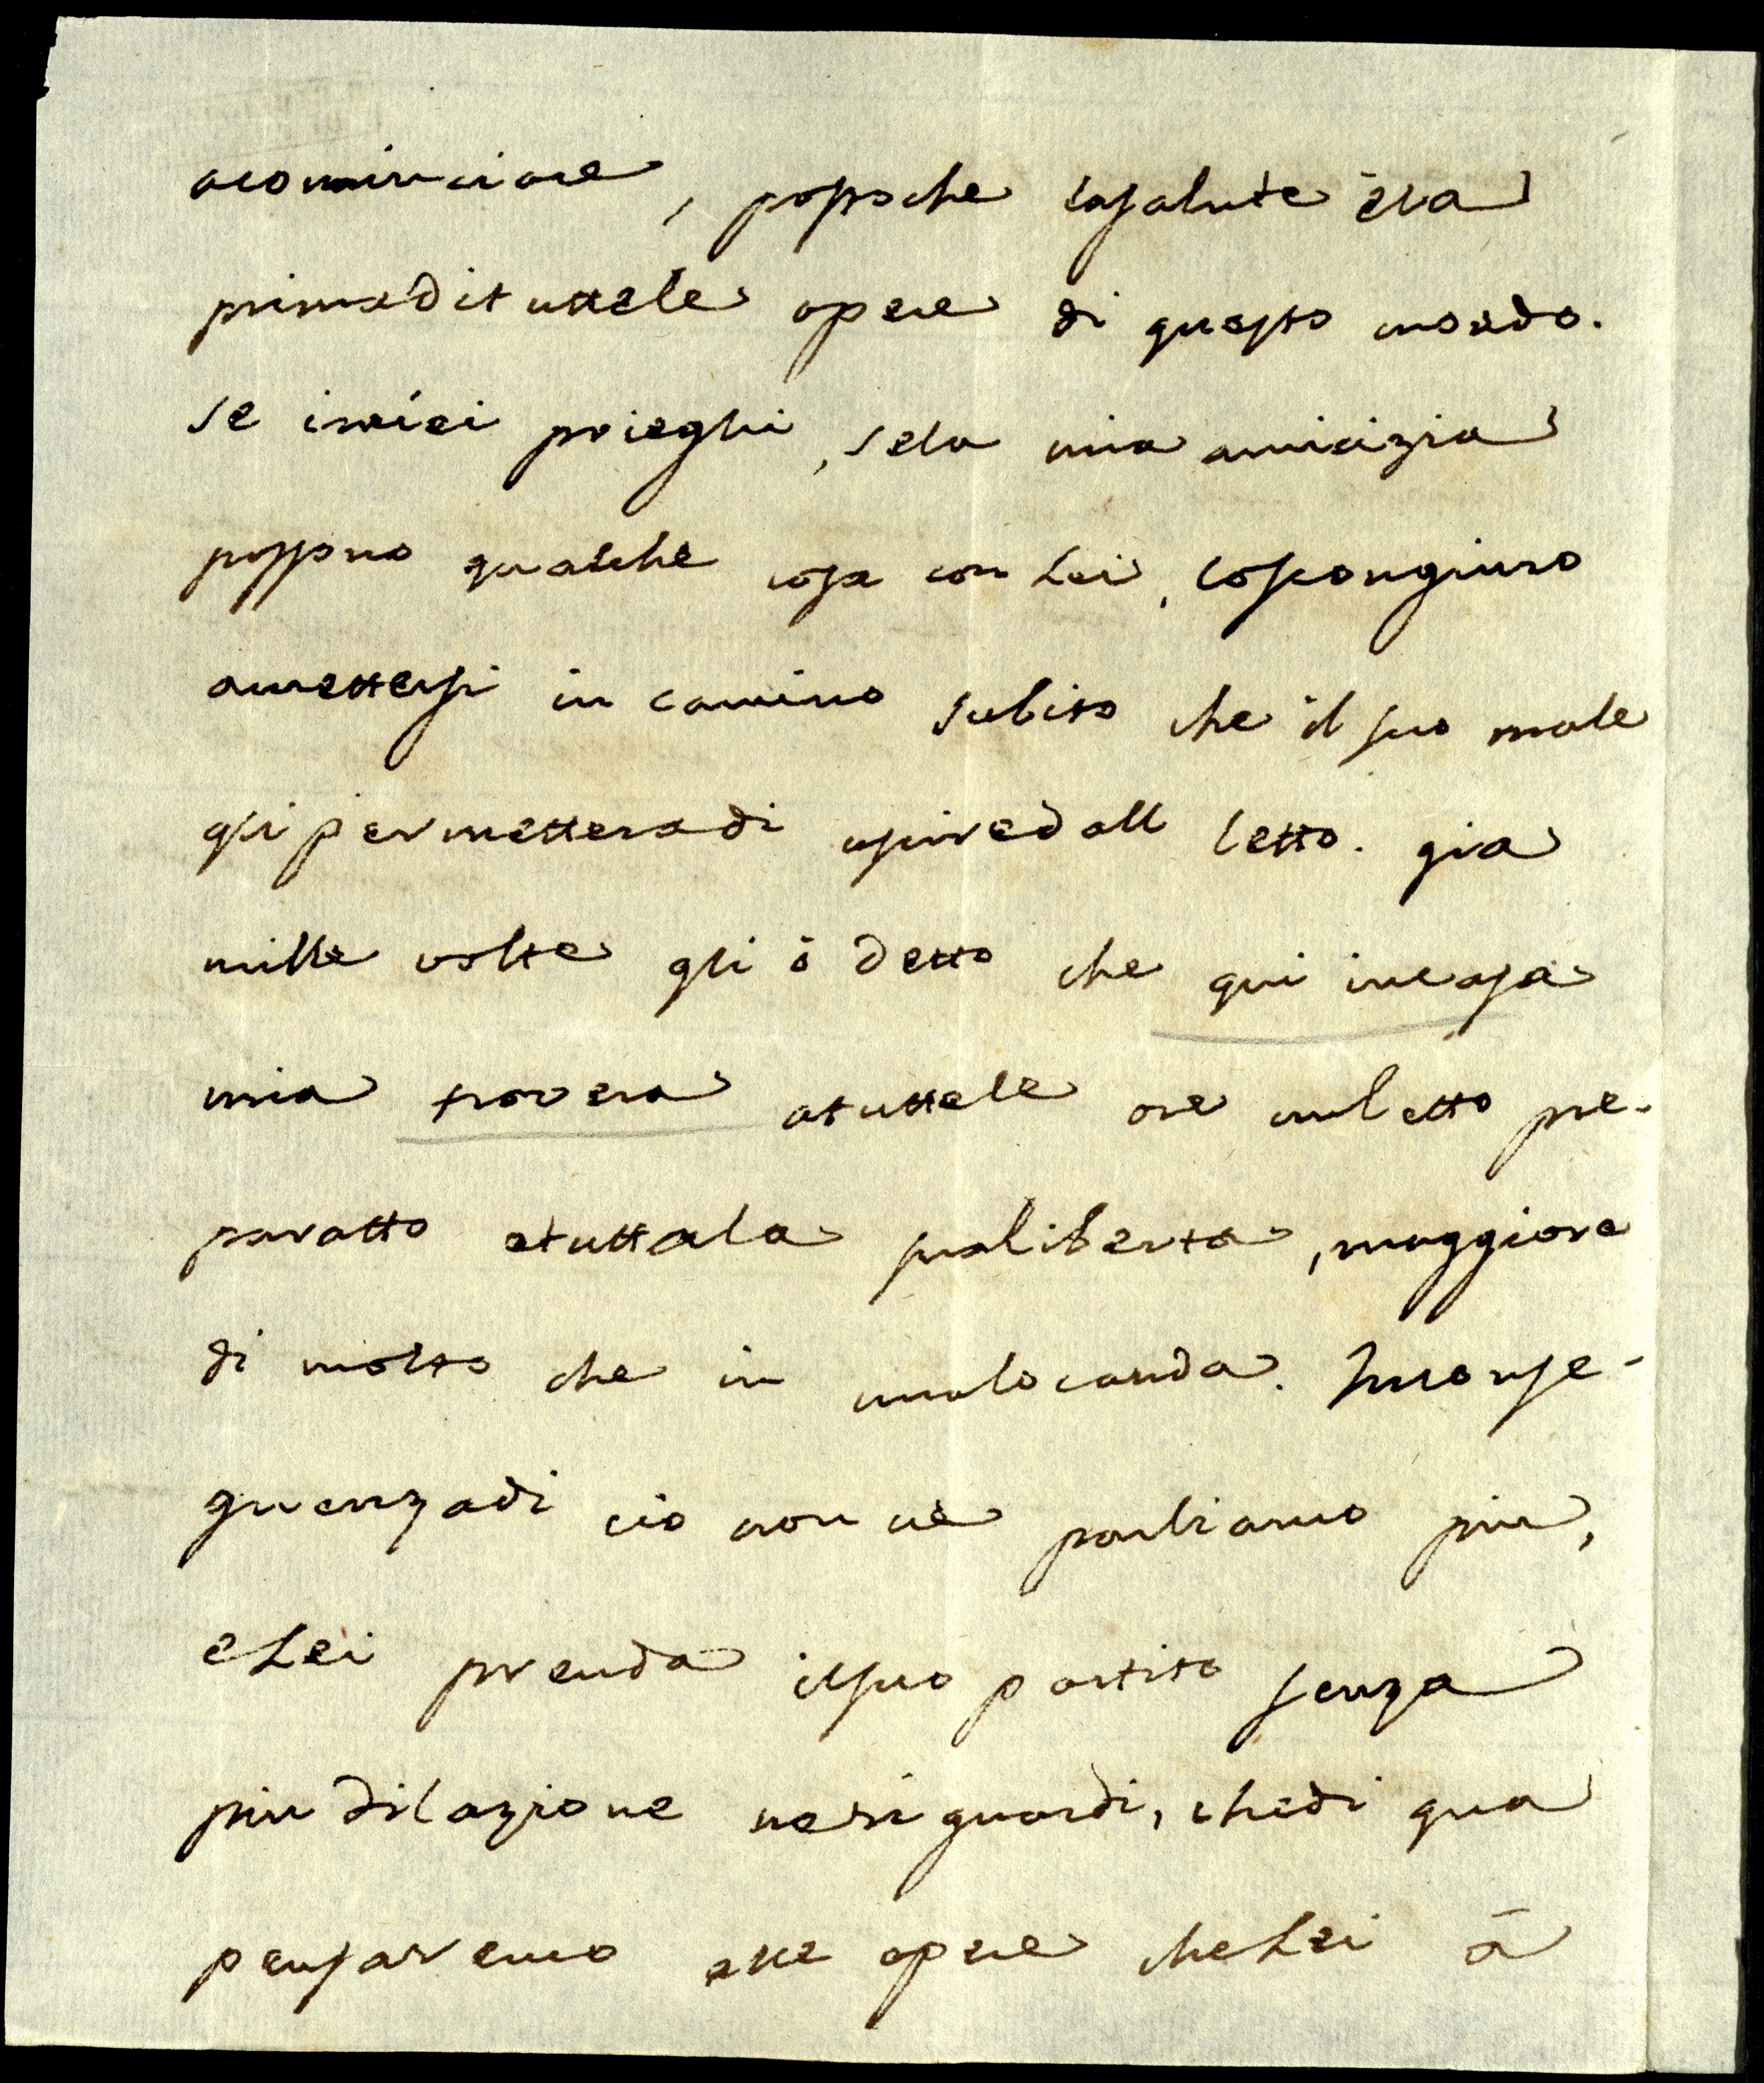 acominciare, possoche lasalute è la
primaditutte le opere di questo mondo.
se imiei prieghi, sela mia amicizia
possono qualche cosa con Lei, loscongiuro
amettersi in camino subito che il suo male
gli permetteradi uscire dall letto. gia
mille volte gli ò detto che qui incasa
mia trovera atuttele ore unletto pre-
paratto etuttala sualiberta, maggiore
di molto che in unalocanda. Inconse-
guenzadi cio non ne parliamo piu,
eLei prenda ilsuo partito senza
piu dilazione neriguardi, chedi qua
pensaremo alle opere cheLei à